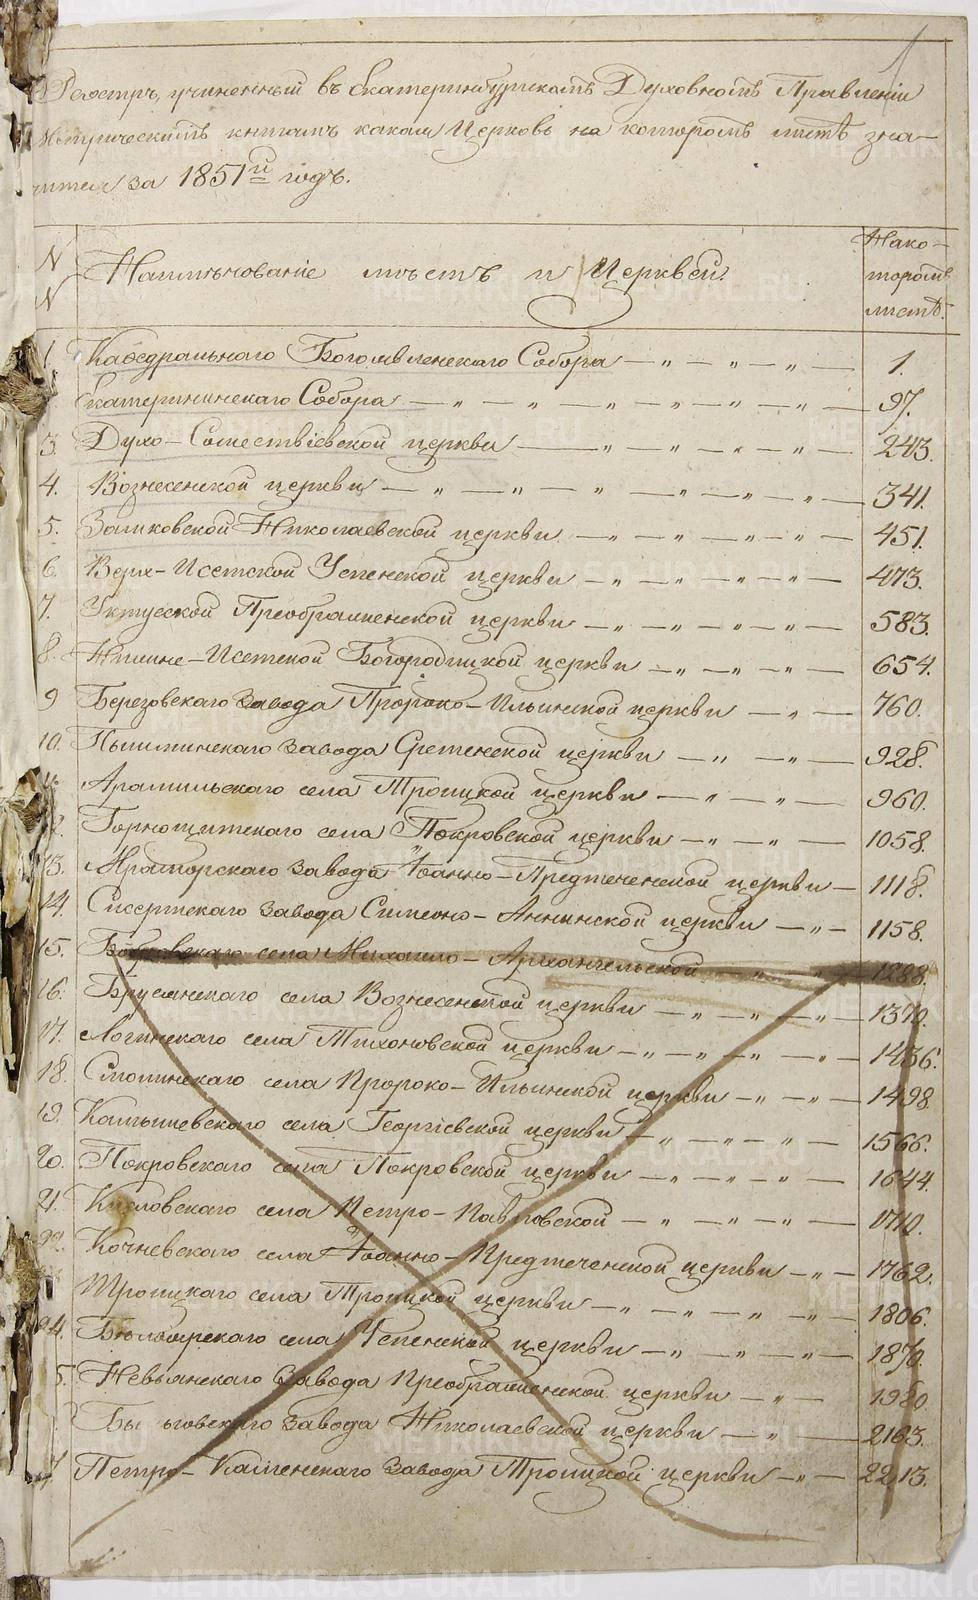 1
Реэстръ, учиненный въ Екатеринбургскомъ Духовномъ Правленіи
Метрическимъ книгамъ какая Церковь на которомъ листѣ зна-
чится за 1851й годъ.
N N Наименованіе мѣстъ и Церквей. На ко-
торомъ
листѣ.
1. Каѳедральнаго Богоявленскаго Собора — „ — „ — „ — 1.
Екатерининскаго Собора — „ — „ — „ — „ — „ — „ — 97.
3. Духо-Сошествіевской церкви — „ — „ — „ — „ — 243.
4. Вознесенской церкви — „ — „ „ — „ — „ — „ — 341.
5. Заимковской Николаевской церкви — „ — „ — „ — „ — 451.
6. Верх-Исетской Успенской церкви — „ — „ — „ — „ — 473.
7. Уктусской Преображенской церкви — „ — „ — „ — „ — 583.
8. Нижне-Исетской Богородицкой церкви — „ — „ — „ — 654.
9 Березовскаго Завода Пророко-Ильинской церкви — „ — 760.
10. Пышминскаго завода Сретенской церкви — „ — „ — 928.
Арамильскаго села Троицкой церкви — „ — „ — 960.
Горнощитскаго села Покровской церкви — „ — „ — 1058.
13. Мраморскаго завода Іоанно-Предтеченской церкви — 1118.
14. Сысертскаго завода Симеоно-Аннинской церкви — „ — 1158.
15. Бобровскаго села Михаило-Архангельской — „ — „ — 1288.
16. Брусянскаго села Вознесенской церкви — „ — „ — „ — 1370.
17. Логиновскаго села Тихоновской церкви — „ — „ — „ — 1436.
18. Смолинскаго села Пророко-Ильинской церкви — „ — „ — 1498
19. Камышевскаго села Георгіевской церкви — „ — „ — „ — 1566.
20. Покровскаго села Покровской церкви — „ — „ — „ — 1644.
21. Кисловскаго села Петро-Павловской — „ — „ — „ — 1710.
22. Кочневскаго села Іоанно-Предтеченской церкви — „ — 1762.
Троицкаго села Троицкой церкви — „ — „ — „ — 1806.
24. Бѣлоярскаго села Успенской церкви — „ — „ — „ — 1870.
5. Невьянскаго Завода Преображенской церкви — „ — 1980.
Бы ьговскаго завода Николаевской церкви — „ — 2163.
7 Петро-Каменскаго завода Троицкой церкви — „ — 2213.
METRIKI.GASO-URAL.RU